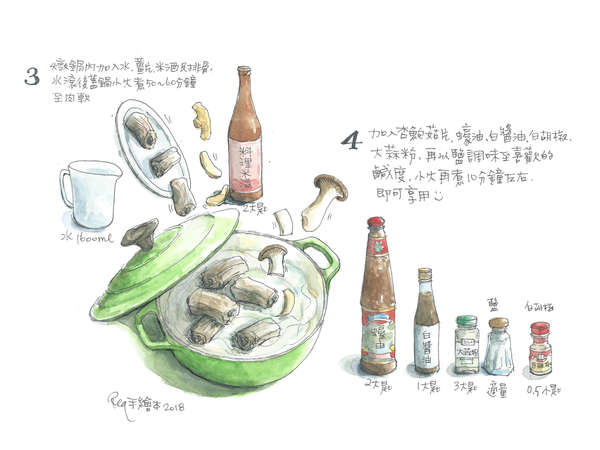 3
燉鍋內加入水,薑片,米酒及排骨.
水滾後蓋鍋小火煮50~60分鐘
至肉軟
料理米酒
2大匙
水1600ml
4
加入杏鮑菇片,蠔油,白醬油,白胡椒,
大蒜粉,再以鹽調味至喜歡的
鹹度,小火再煮10分鐘左右.
即可享用
蠔油
白醬油
大蒜粉
鹽
白胡椒
2大匙
1大匙
3大匙
適量
0.5小匙
手繪本2018